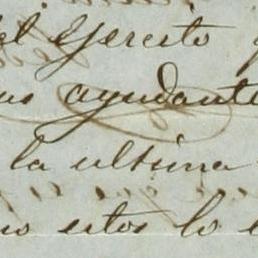 del Ejercito
ayudante
la ultima
estos lo